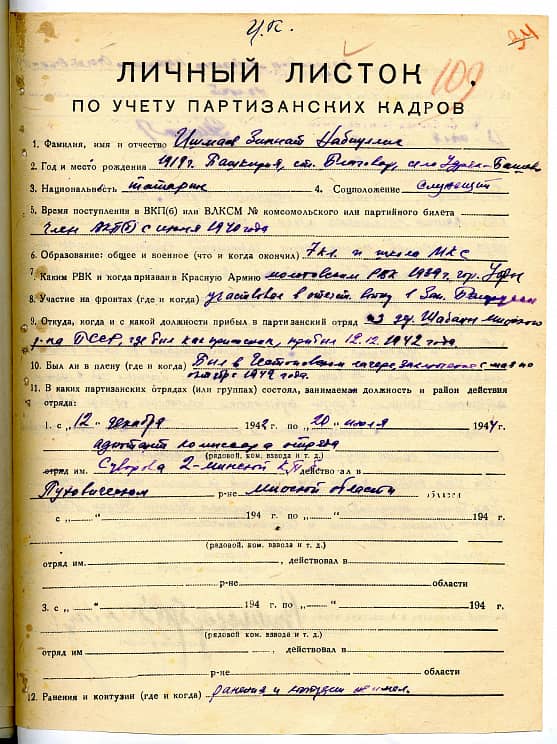 Ц.К.
34
109
ЛИЧНЫЙ ЛИСТОК
ПО УЧЕТУ ПАРТИЗАНСКИХ КАДРОВ
1. Фамилия, имя и отчество
2. Год и место рождения 1919 г. Башкирия, ст. село
3. Национальность татарин 4. Соцположение Служащий
5. Время поступления в ВКП(б) или ВЛКСМ № комсомольского или партийного билета
член ВКП(б) с июня 1940 года
6. Образование: общее и военное (что и когда окончил) 7 кл. и школа МКС
7. Каким РВК и когда призван в Красную Армию Молотовским РВК 1939 г. гор. Уфы
8. Участие на фронтах (где и когда) участвовал в отечест. войну в Зап. Белоруссии
9. Откуда, когда и с какой должности прибыл в партизанский отряд из др. Шабани Минского
р-на БССР, где был как прибыл 12.12.1942 года.
10. Был ли в плену (где и когда) Был в лагере с мая по
октябрь 1942 года.
11. В каких партизанских отрядах (или группах) состоял, занимаемая должность и район действия
отряда:
1. с „12“ декабря 1942 г. по „20“ июля 1944 г.
адъютант комиссара отряда
(рядовой, ком. взвода и т. д.)
отряд им. Суворова 2-минской действовал в
Пуховичском р-не Минской области области
с „ “ 194 г. по „ “ 194 г.
(рядовой, ком. взвода и т. д.)
отряд им. , действовал в
р-не области
3. с „ “ 194 г. по „ “ 194 г.
(рядовой, ком. взвода и т. д.)
отряд им , действовал в
р-не области
12. Ранения и контузии (где и когда) ранения и контузии не имел.